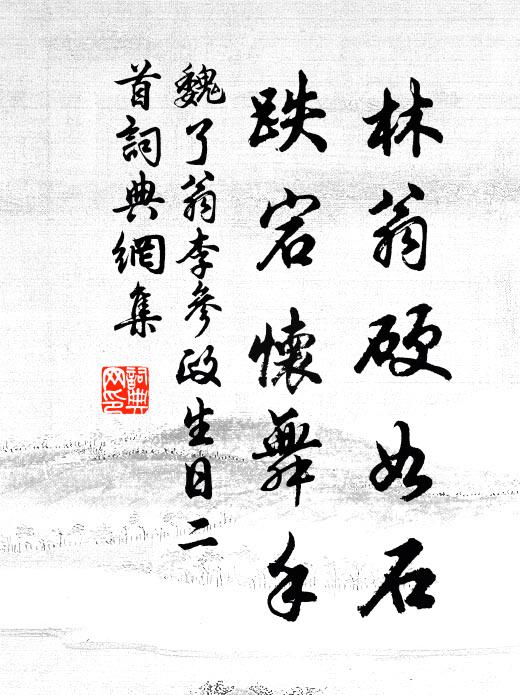 林翁硬如石
跌宕懷舞手
魏了翁李參政生日二
首詞典網集
詞典
网印